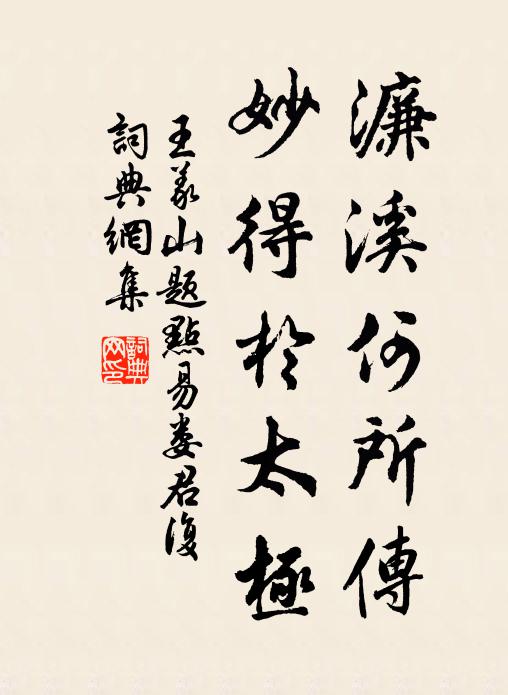 濂溪何所傳
妙得於太極
王義山題點易婁君復
詞典網集
詞典網印